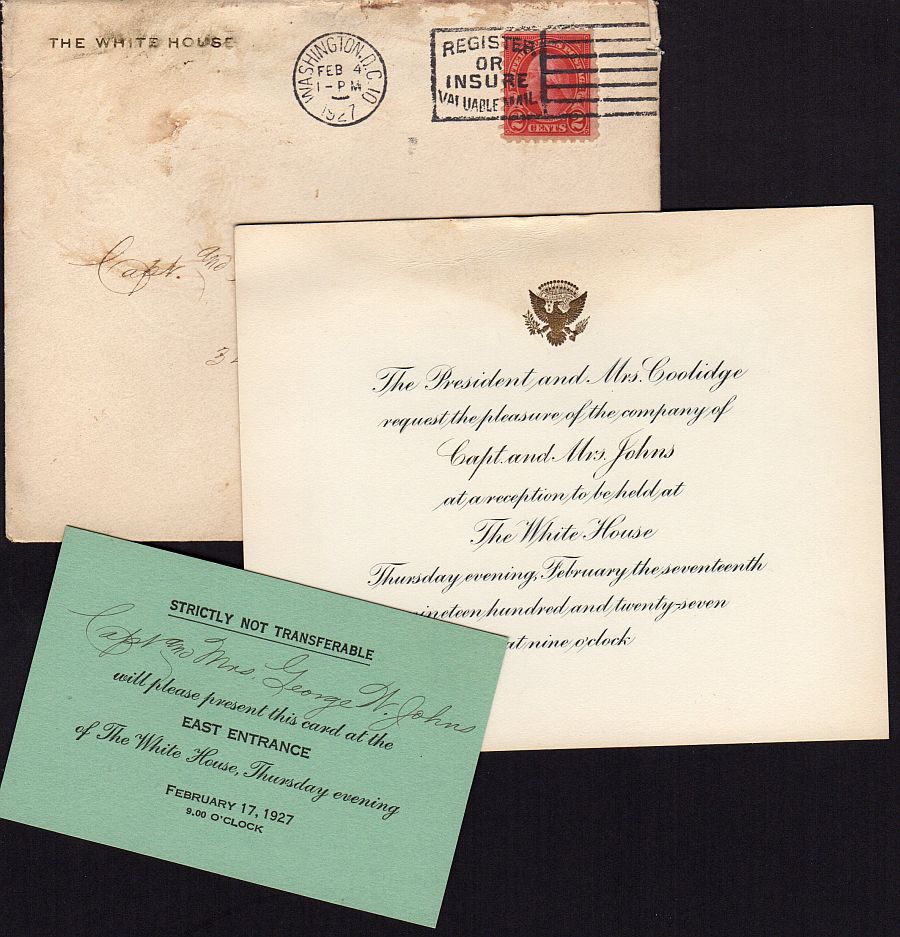 THE WHITE HOUSE
WASHINGTON, D.C. 10
FEB 4
1-PM
1927
REGISTER
OR
INSURE
VALUABLE MAIL
2 CENTS 2
Capt. and
The President and Mrs. Coolidge
request the pleasure of the company of
Capt. and Mrs. Johns
at a reception to be held at
The White House
Thursday evening, February the seventeenth
nineteen hundred and twenty-seven
at nine o'clock
STRICTLY NOT TRANSFERABLE
Capt and Mrs. George W. Johns
will please present this card at the
EAST ENTRANCE
of The White House, Thursday evening
FEBRUARY 17, 1927
9.00 O'CLOCK